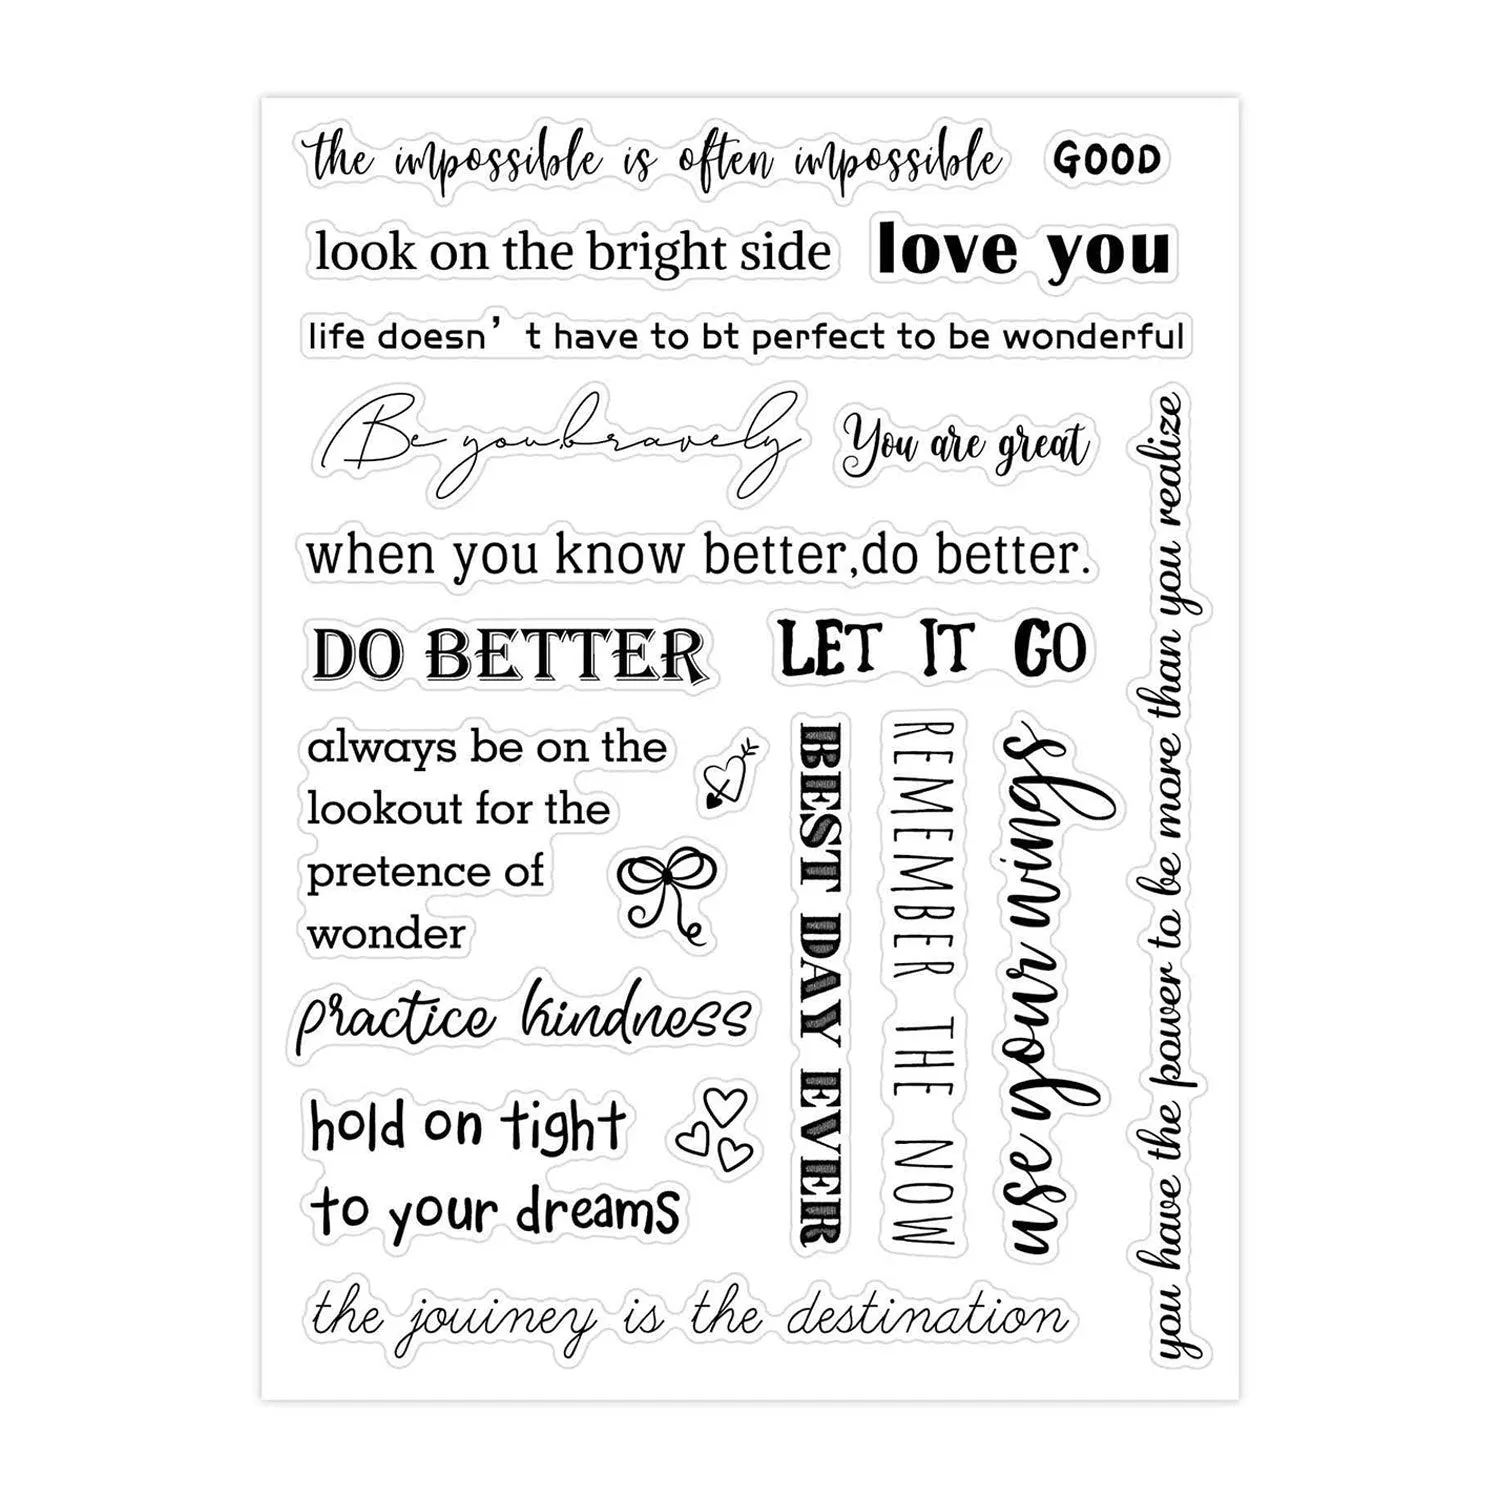 the impossible is often impossible
GOOD
look on the bright side
love you
life doesn't have to bt perfect to be wonderful
Be you,bravely
You are great
when you know better,do better.
DO BETTER
LET IT GO
always be on the
lookout for the
pretence of
wonder
practice kindness
hold on tight
to your dreams
the jouiney is the destination
BEST DAY EVER
REMEMBER THE NOW
use your wings
you have the power to be more than you realize